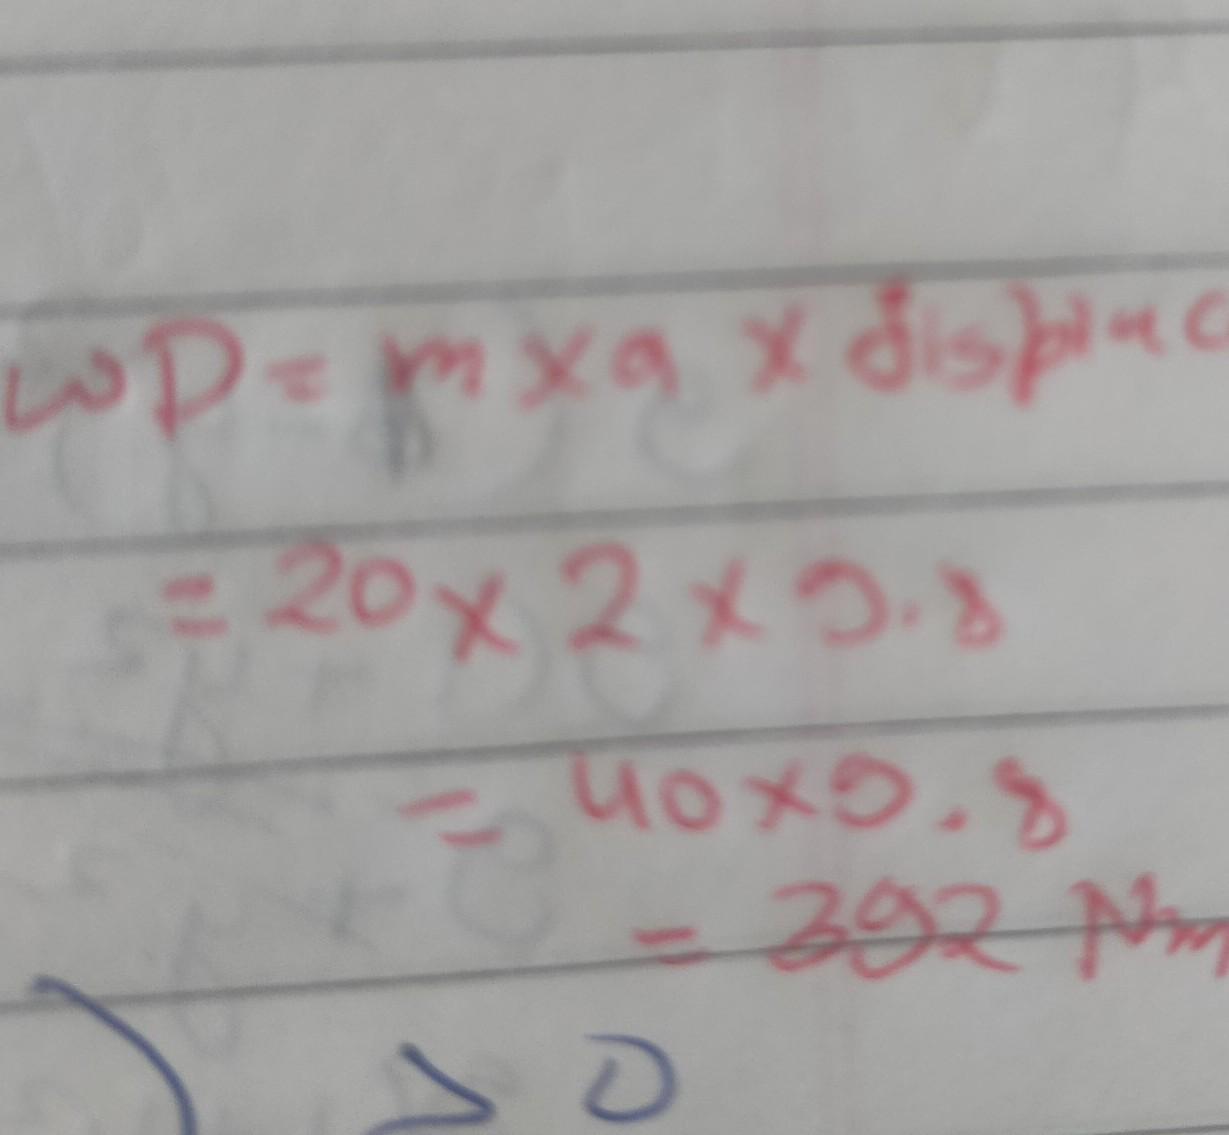 WD = m x a x displac
= 20 x 2 x 9.8
= 40 x 9.8
= 392 Nm
) > 0